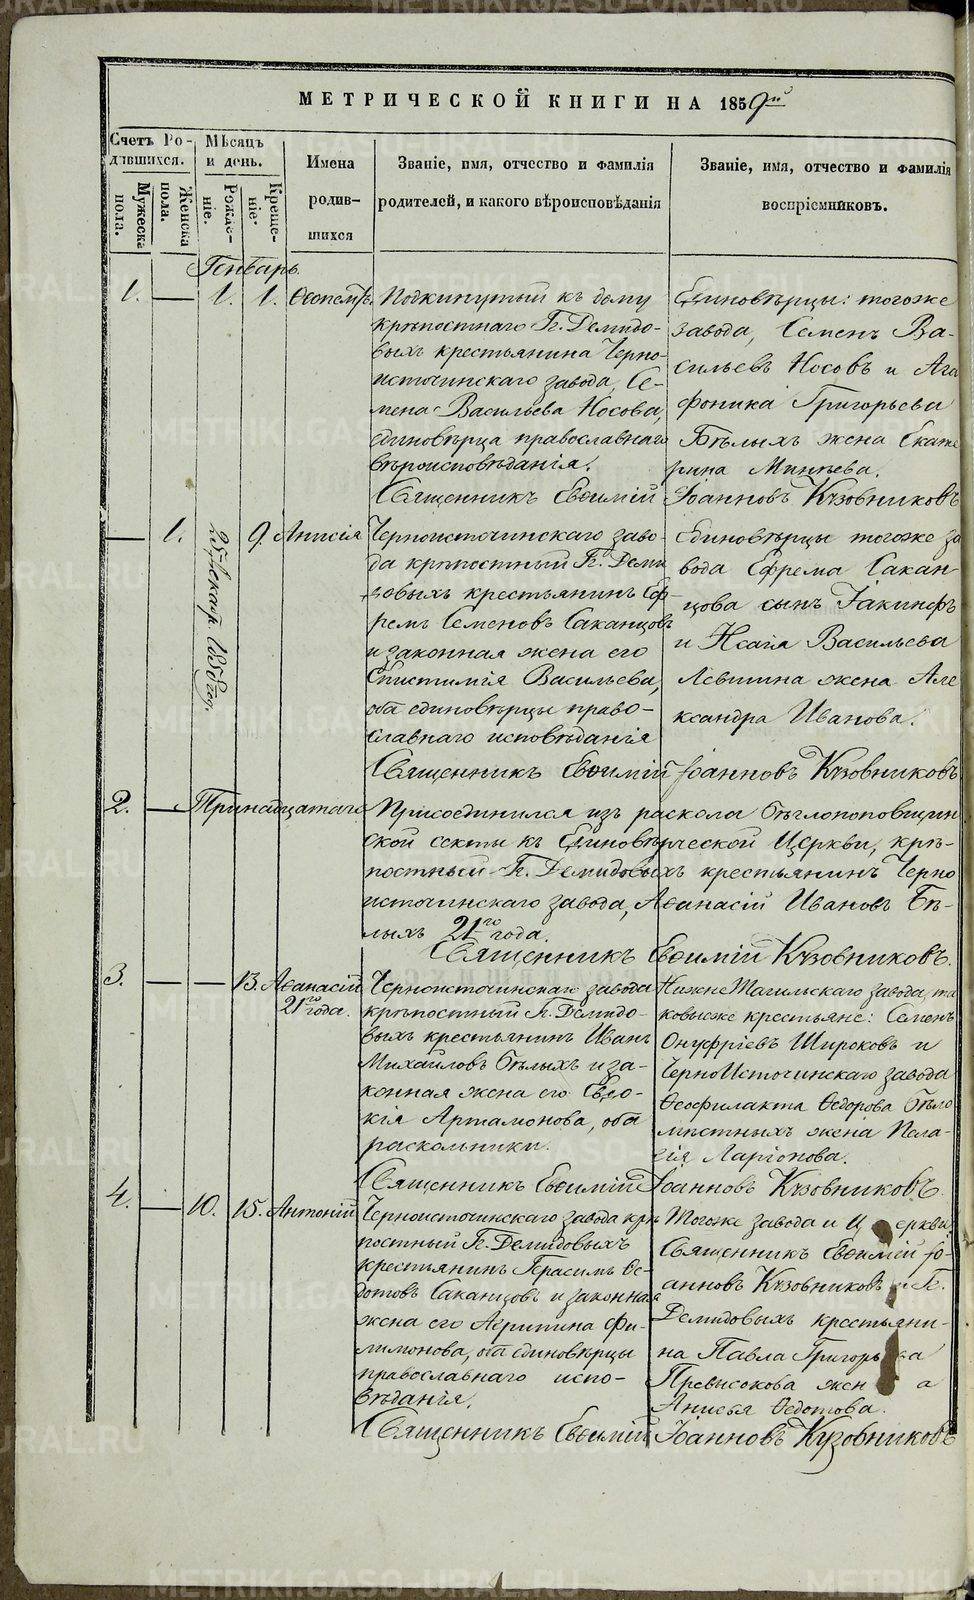 МЕТРИЧЕСКОЙ КНИГИ НА 1859й
Счетъ Ро-
дившихся.
Мужеска
пола.
Женска
пола.
Мѣсяцъ
и день.
Рожде-
ніе.
Креще-
ніе.
Имена
родив-
шихся
Званіе, имя, отчество и фамилія
родителей, и какого вѣроисповѣданія
Званіе, имя, отчество и фамилія
воспріемниковъ.
Генварь.
1. — 1. 1.
Подкинутый къ дому
крѣпостнаго Г. Демидо-
выхъ крестьянина Черно-
источинскаго завода, Се-
мена Васильева Носова,
единовѣрца православнаго
вѣроисповѣданія.
Единовѣрцы: тогоже
завода, Семенъ Ва-
сильевъ Носовъ и Ага
фоника Григорьева
Бѣлыхъ жена Екате
рина Минѣева.
Священникъ Евѳимій Іоанновъ Кузовниковъ
— 1. 25 Декабр. 1858 год. 9. Анисія
Черноисточинскаго заво-
да крѣпостный Г. Деми
довыхъ крестьянинъ Еф-
ремъ Семеновъ Саканцовъ
и законная жена его
Епистимія Васильева,
оба единовѣрцы право-
славнаго исповѣданія
Единовѣрцы тогоже за
вода Ефрема Сакан-
цова сынъ Іакинфъ
и Исаія Васильева
Левшина жена Але
ксандра Иванова.
Священникъ Евѳимій Іоанновъ Кузовниковъ
2. — Тринадцатаго Присоединился изъ раскола бѣглопоповщин
ской секты къ Единовѣрческой Церкви, крѣ-
постный Г. Демидовыхъ крестьянинъ Черно
источинскаго завода, Аѳанасій Ивановъ Бѣ-
лыхъ 21го года.
Священникъ Евѳимій Кузовниковъ.
3. — — 13. Аѳанасій
21го года.
Черноисточинскаго завода
крѣпостный Г. Демидо-
выхъ крестьянинъ Иванъ
Михайловъ Бѣлыхъ и за-
конная жена его Евдо-
кія Артамонова, оба
раскольники.
НижнеТагильскаго завода, та
ковыеже крестьяне: Семенъ
Онуфріевъ Широковъ и
ЧерноИсточинскаго завода
Ѳеофилакта Ѳедорова Бѣло
мѣстныхъ жена Пела-
гія Ларіонова.
Священникъ Евѳимій Іоанновъ Кузовниковъ
4. — 10. 15. Антоній
Черноисточинскаго завода крѣ
постный Г. Демидовыхъ
крестьянинъ Герасимъ Ѳе-
дотовъ Саканцовъ и законная
жена его Агрипина Фи-
лимонова, оба единовѣрцы
православнаго испо-
вѣданія.
Тогоже завода и Церкви
Священникъ Евѳимій Іо-
анновъ Кузовниковъ и Г.
Демидовыхъ крестьяни-
на Павла Григорьева
Превысокова жена
Анисья Ѳедотова.
Священникъ Евѳимій Іоанновъ Кузовниковъ
METRIKI.GASO-URAL.RU